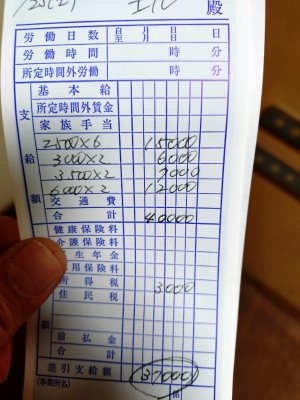 殿
労働日数 自 月 日 至 月 日 日
労働時間 時 分
所定時間外労働 時 分
支給額
基本給
所定時間外賃金
家族手当
2500×6 15000
3000×2 6000
3500×2 7000
6000×2 12000
交通費
合計 40000
健康保険料
介護保険料
生年金
用保険料
所得税 3000
住民税
額
前払金
合計
差引支給額 37000
(事業所名) 係